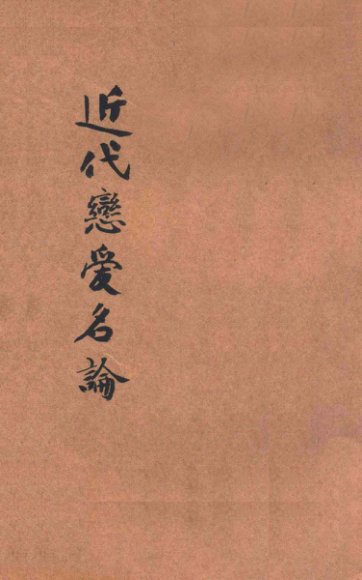 近代戀愛名論